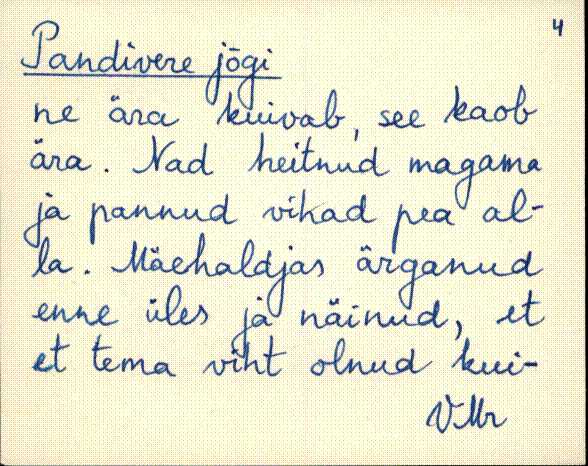 4
Pandivere jõgi
ne ära kuivab, see kaob
ära. Nad heitnud magama
ja pannud vihad pea al-
la. Mäehaldjas ärganud
enne üles ja näinud, et
et tema viht olnud kui-
VMr